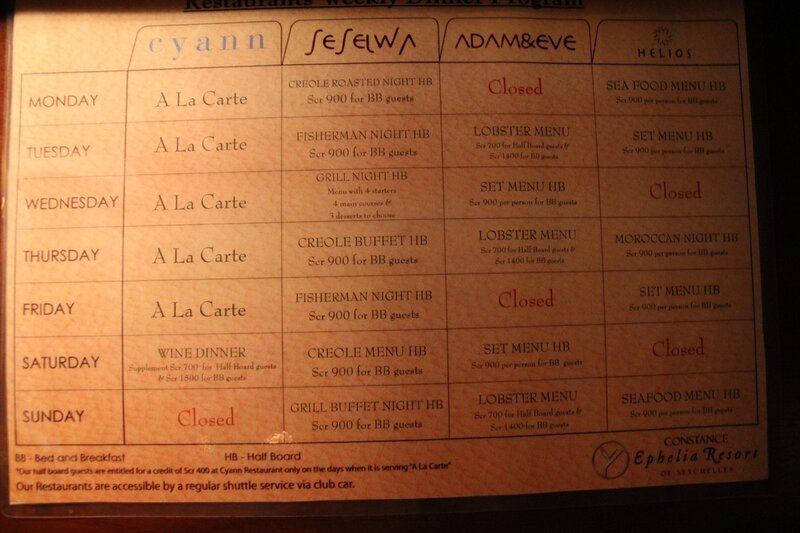 Restaurants' Weekly Dinner Program
cyann
SESELWA
ADAM&EVE
HELIOS
MONDAY
A La Carte
CREOLE ROASTED NIGHT HB
Scr 900 for BB guests
Closed
SEA FOOD MENU HB
Scr 900 per person for BB guests
TUESDAY
A La Carte
FISHERMAN NIGHT HB
Scr 900 for BB guests
LOBSTER MENU
Scr 700 for Half Board guests &
Scr 1400 for BB guests
SET MENU HB
Scr 900 per person for BB guests
WEDNESDAY
A La Carte
GRILL NIGHT HB
Menu with 4 starters
4 main courses &
3 desserts to choose
SET MENU HB
Scr 900 per person for BB guests
Closed
THURSDAY
A La Carte
CREOLE BUFFET HB
Scr 900 for BB guests
LOBSTER MENU
Scr 700 for Half Board guests &
Scr 1400 for BB guests
MOROCCAN NIGHT HB
Scr 900 per person for BB guests
FRIDAY
A La Carte
FISHERMAN NIGHT HB
Scr 900 for BB guests
Closed
SET MENU HB
Scr 900 per person for BB guests
SATURDAY
WINE DINNER
Supplement Scr 700 for Half Board guests
& Scr 1500 for BB guests
CREOLE MENU HB
Scr 900 for BB guests
SET MENU HB
Scr 900 per person for BB guests
Closed
SUNDAY
Closed
GRILL BUFFET NIGHT HB
Scr 900 for BB guests
LOBSTER MENU
Scr 700 for Half Board guests &
Scr 1400 for BB guests
SEAFOOD MENU HB
Scr 900 per person for BB guests
BB - Bed and Breakfast
HB - Half Board
*Our half board guests are entitled for a credit of Scr 400 at Cyann Restaurant only on the days when it is serving "A La Carte"
Our Restaurants are accessible by a regular shuttle service via club car.
CONSTANCE
Ephelia Resort
OF SEYCHELLES